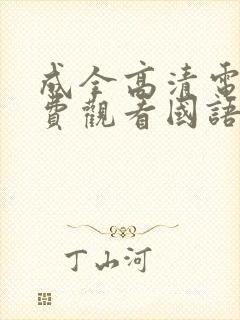 成全高清電
費觀看國語
丁山河